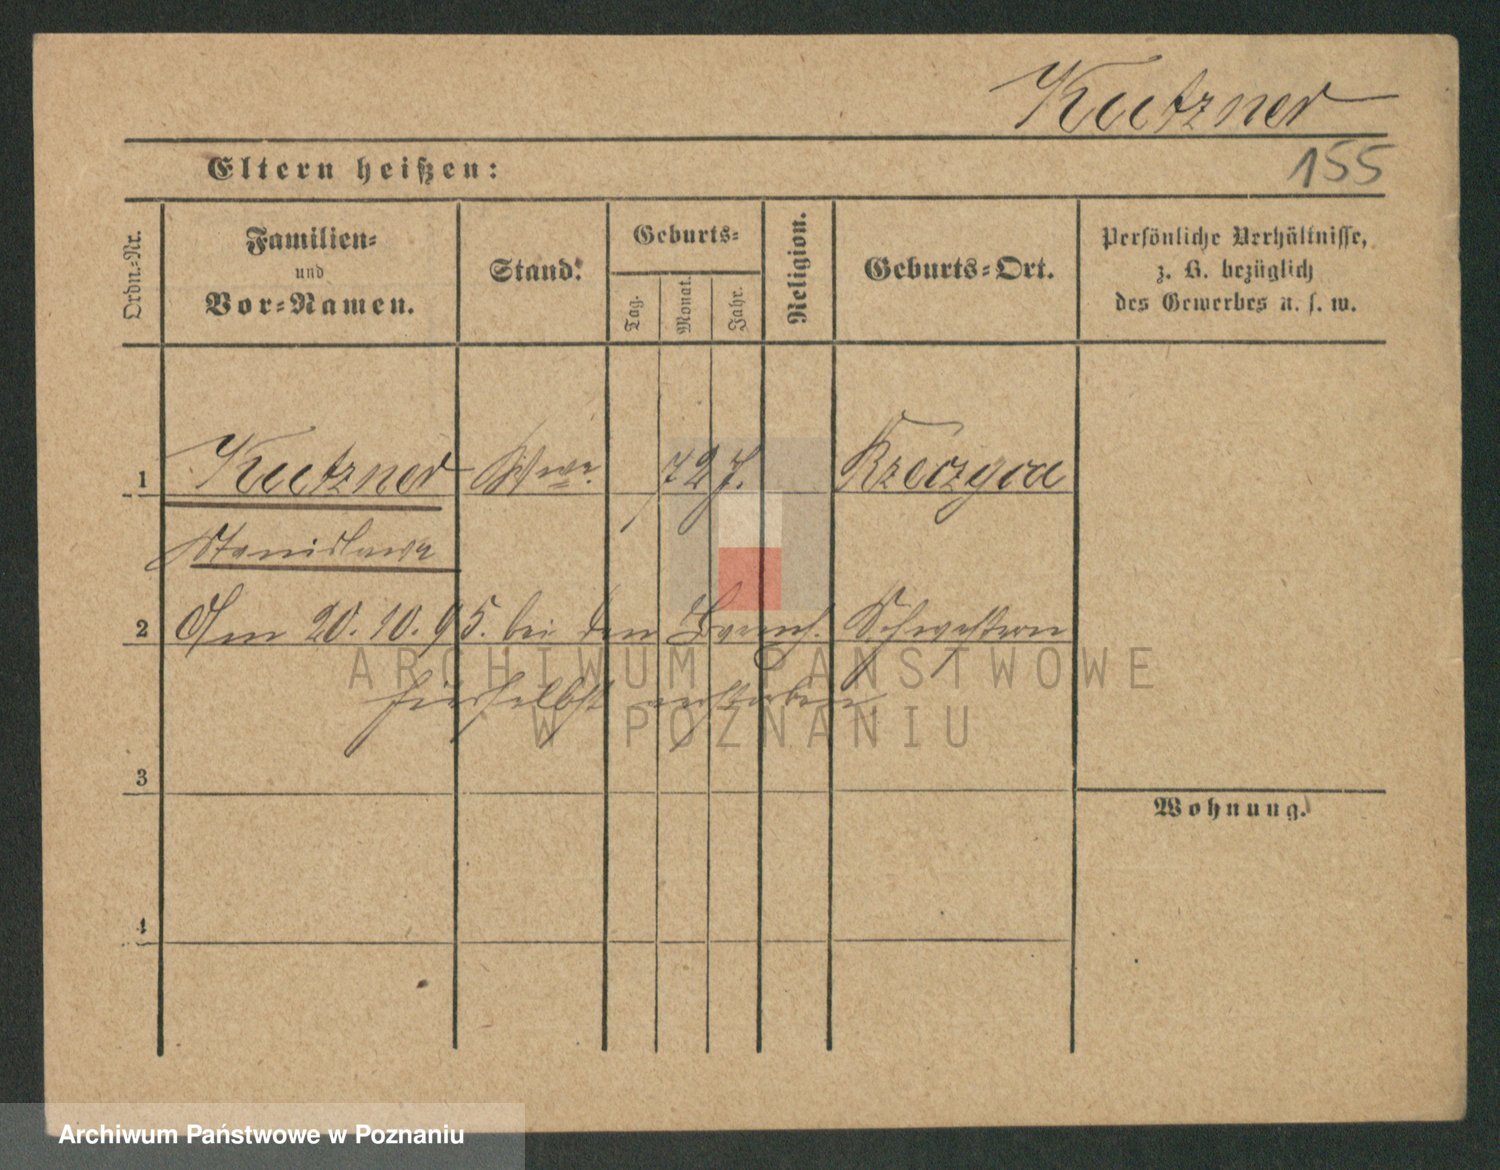 Kutzner
155
Eltern heißen:
Ordn.-Nr.
Familien-
und
Vor-Namen.
Stand.
Geburts-
Tag.
Monat.
Jahr.
Religion.
Geburts-Ort.
Persönliche Verhältnisse,
z. B. bezüglich
des Gewerbes u. s. w.
1 Kutzner Wwe. 72 J.
Stanislawa
2 Am 20.10.95. bei den Schwestern
hierselbst verstorben.
3
Wohnung.
4
ARCHIWUM PAŃSTWOWE
W POZNANIU
Archiwum Państwowe w Poznaniu